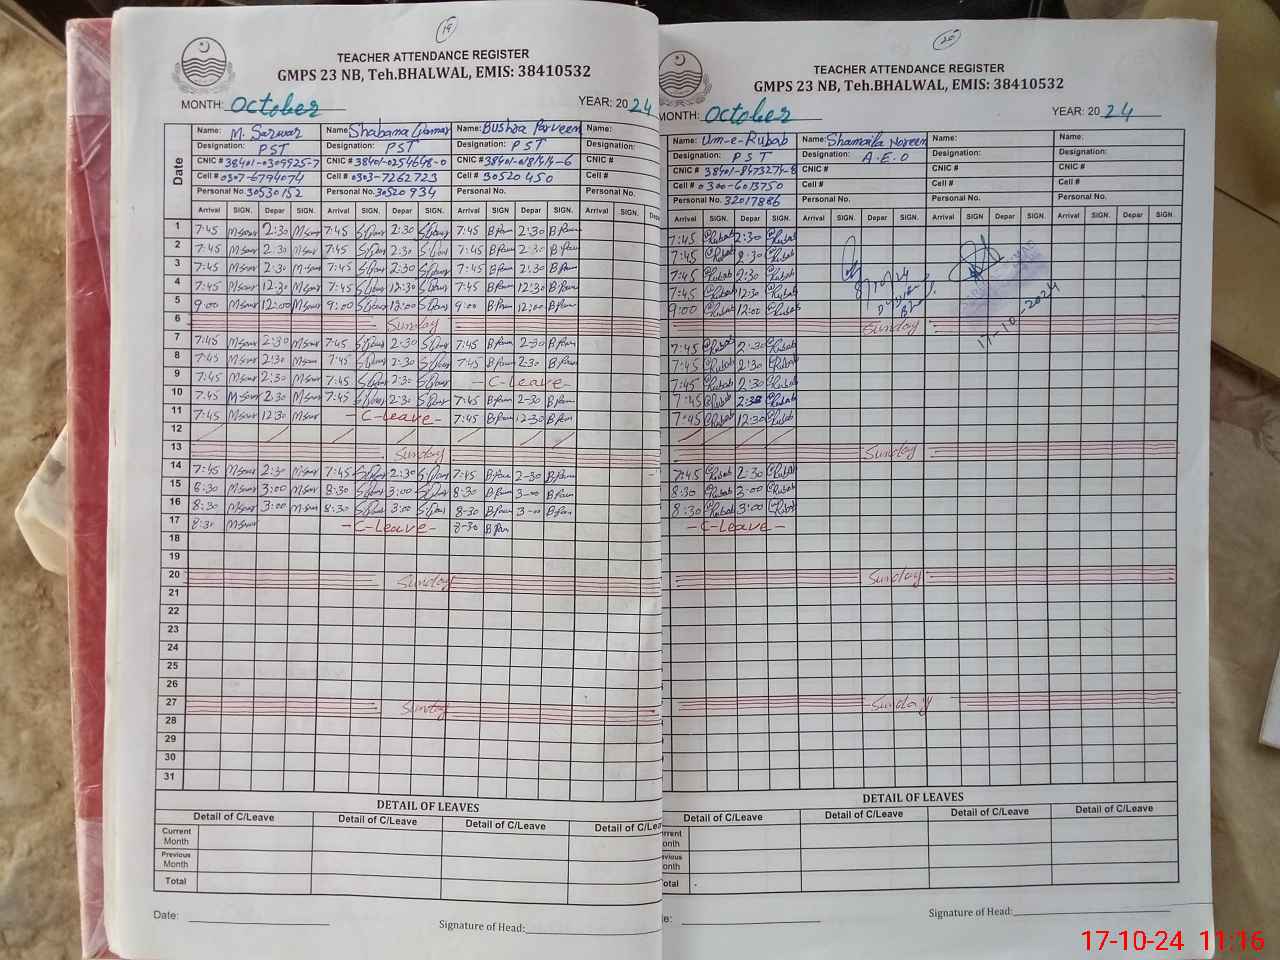 19
TEACHER ATTENDANCE REGISTER
GMPS 23 NB, Teh.BHALWAL, EMIS: 38410532
MONTH: October YEAR: 2024
Date
Name: M. Sarwar Name: Shabana Qamar Name: Bushra Parveen Name:
Designation: PST Designation: PST Designation: PST Designation:
CNIC # 38401-0309925-7 CNIC # 38401-0254648-0 CNIC # CNIC #
Cell # 0307-6794074 Cell # 0303-7262723 Cell # 30520450 Cell #
Personal No. 30530152 Personal No. 30520934 Personal No. Personal No.
Arrival SIGN. Depar SIGN. Arrival SIGN. Depar SIGN. Arrival SIGN Depar SIGN. Arrival SIGN. Depa
1 7:45 Msar 2:30 Msar 7:45 2:30 7:45 B Parv 2:30 B Parv
2 7:45 Msar 2:30 Msar 7:45 2:30 7:45 B Parv 2:30 B Parv
3 7:45 Msar 2:30 Msar 7:45 2:30 7:45 B Parv 2:30 B Parv
4 7:45 Msar 12:30 Msar 7:45 12:30 7:45 B Parv 12:30 B Parv
5 9:00 Msar 12:00 Msar 9:00 12:00 9:00 B Parv 12:00 B Parv
6 Sunday
7 7:45 Msar 2:30 Msar 7:45 2:30 7:45 B Parv 2-30 B Parv
8 7:45 Msar 2:30 Msar 7:45 2:30 7:45 B Parv 2-30 B Parv
9 7:45 Msar 2:30 Msar 7:45 2:30 -C-Leave-
10 7:45 Msar 2:30 Msar 7:45 2:30 7:45 B Parv 2-30 B Parv
11 7:45 Msar 12:30 Msar -C-Leave- 7:45 B Parv 12-30 B Parv
12
13 Sunday
14 7:45 Msar 2:30 Msar 7:45 2:30 7:45 B Parv 2-30 B Parv
15 8:30 Msar 3:00 Msar 8:30 3:00 8-30 B Parv 3-00 B Parv
16 8:30 Msar 3:00 Msar 8:30 3:00 8-30 B Parv 3-00 B Parv
17 8:30 Msar -C-Leave- 8-30 B Parv
18
19
20 Sunday
21
22
23
24
25
26
27 Sunday
28
29
30
31
DETAIL OF LEAVES
Detail of C/Leave Detail of C/Leave Detail of C/Leave Detail of C/Lea
Current Month
Previous Month
Total
Date: Signature of Head:
20
TEACHER ATTENDANCE REGISTER
GMPS 23 NB, Teh.BHALWAL, EMIS: 38410532
MONTH: October YEAR: 2024
Name: Um-e-Rubab Name: Shamaila Noreen Name: Name:
Designation: PST Designation: A.E.O Designation: Designation:
CNIC # 38401-8473274-8 CNIC # CNIC # CNIC #
Cell # 0300-6013750 Cell # Cell # Cell #
Personal No. 32017886 Personal No. Personal No. Personal No.
Arrival SIGN. Depar SIGN. Arrival SIGN. Depar SIGN. Arrival SIGN. Depar SIGN. Arrival SIGN. Depar SIGN.
7:45 Rubab 2:30 Rubab
7:45 Rubab 2:30 Rubab
7:45 Rubab 2:30 Rubab
7:45 Rubab 12:30 Rubab
9:00 Rubab 12:00 Rubab
Sunday
17-10-2024
7:45 Rubab 2:30 Rubab
7:45 Rubab 2:30 Rubab
7:45 Rubab 2:30 Rubab
7:45 Rubab 2:30 Rubab
7:45 Rubab 12:30 Rubab
Sunday
7:45 Rubab 2:30 Rubab
8:30 Rubab 3:00 Rubab
8:30 Rubab 3:00 Rubab
-C-Leave-
Sunday
Sunday
DETAIL OF LEAVES
Detail of C/Leave Detail of C/Leave Detail of C/Leave Detail of C/Leave
rrent onth
evious Month
Total
e: Signature of Head:
17-10-24 11:16